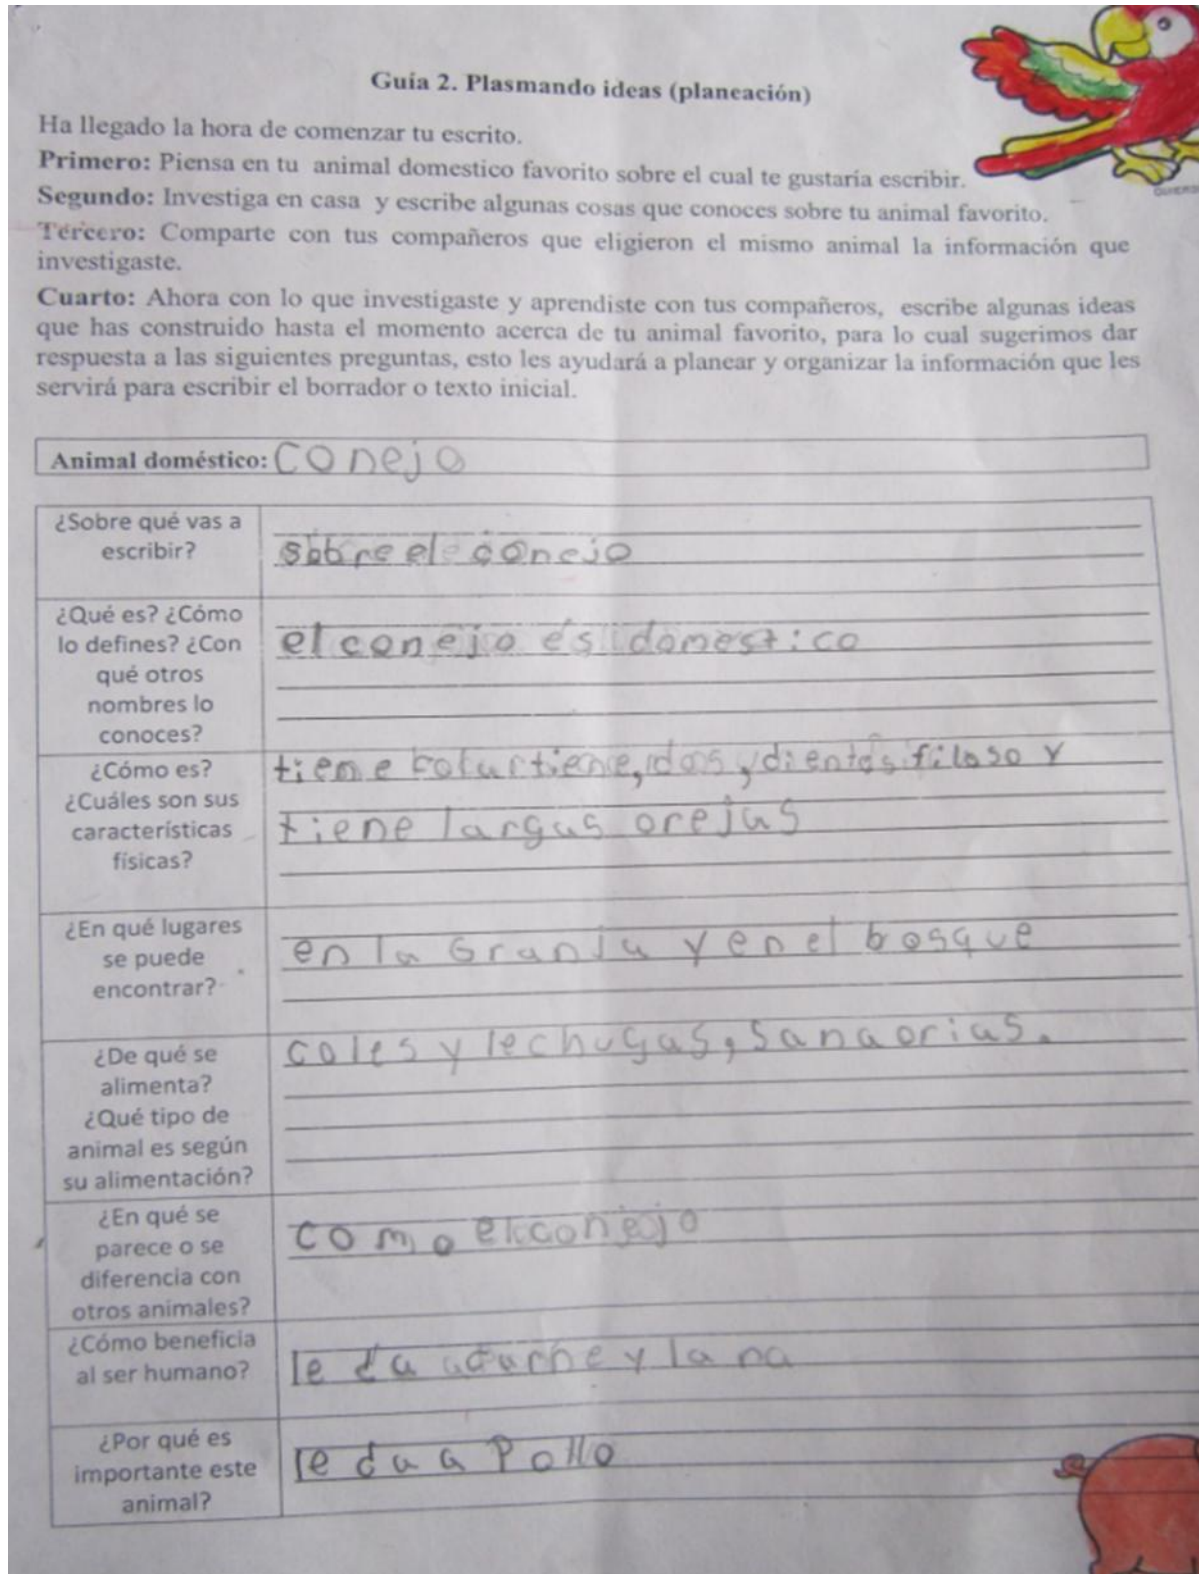 Guía 2. Plasmando ideas (planeación)
Ha llegado la hora de comenzar tu escrito.
Primero: Piensa en tu animal domestico favorito sobre el cual te gustaría escribir.
Segundo: Investiga en casa y escribe algunas cosas que conoces sobre tu animal favorito.
Tercero: Comparte con tus compañeros que eligieron el mismo animal la información que
investigaste.
Cuarto: Ahora con lo que investigaste y aprendiste con tus compañeros, escribe algunas ideas
que has construido hasta el momento acerca de tu animal favorito, para lo cual sugerimos dar
respuesta a las siguientes preguntas, esto les ayudará a planear y organizar la información que les
servirá para escribir el borrador o texto inicial.
Animal doméstico: conejo
¿Sobre qué vas a
escribir?
sobre el conejo
¿Qué es? ¿Cómo
lo defines? ¿Con
qué otros
nombres lo
conoces?
el conejo es domestico
¿Cómo es?
¿Cuáles son sus
características
físicas?
tiene tiene, dos, dientes filoso y
tiene largas orejas
¿En qué lugares
se puede
encontrar?
en la Granja y en el bosque
¿De qué se
alimenta?
¿Qué tipo de
animal es según
su alimentación?
coles y lechugas, sanaorias.
¿En qué se
parece o se
diferencia con
otros animales?
como el conejo
¿Cómo beneficia
al ser humano?
le da y lana
¿Por qué es
importante este
animal?
le da a Pollo